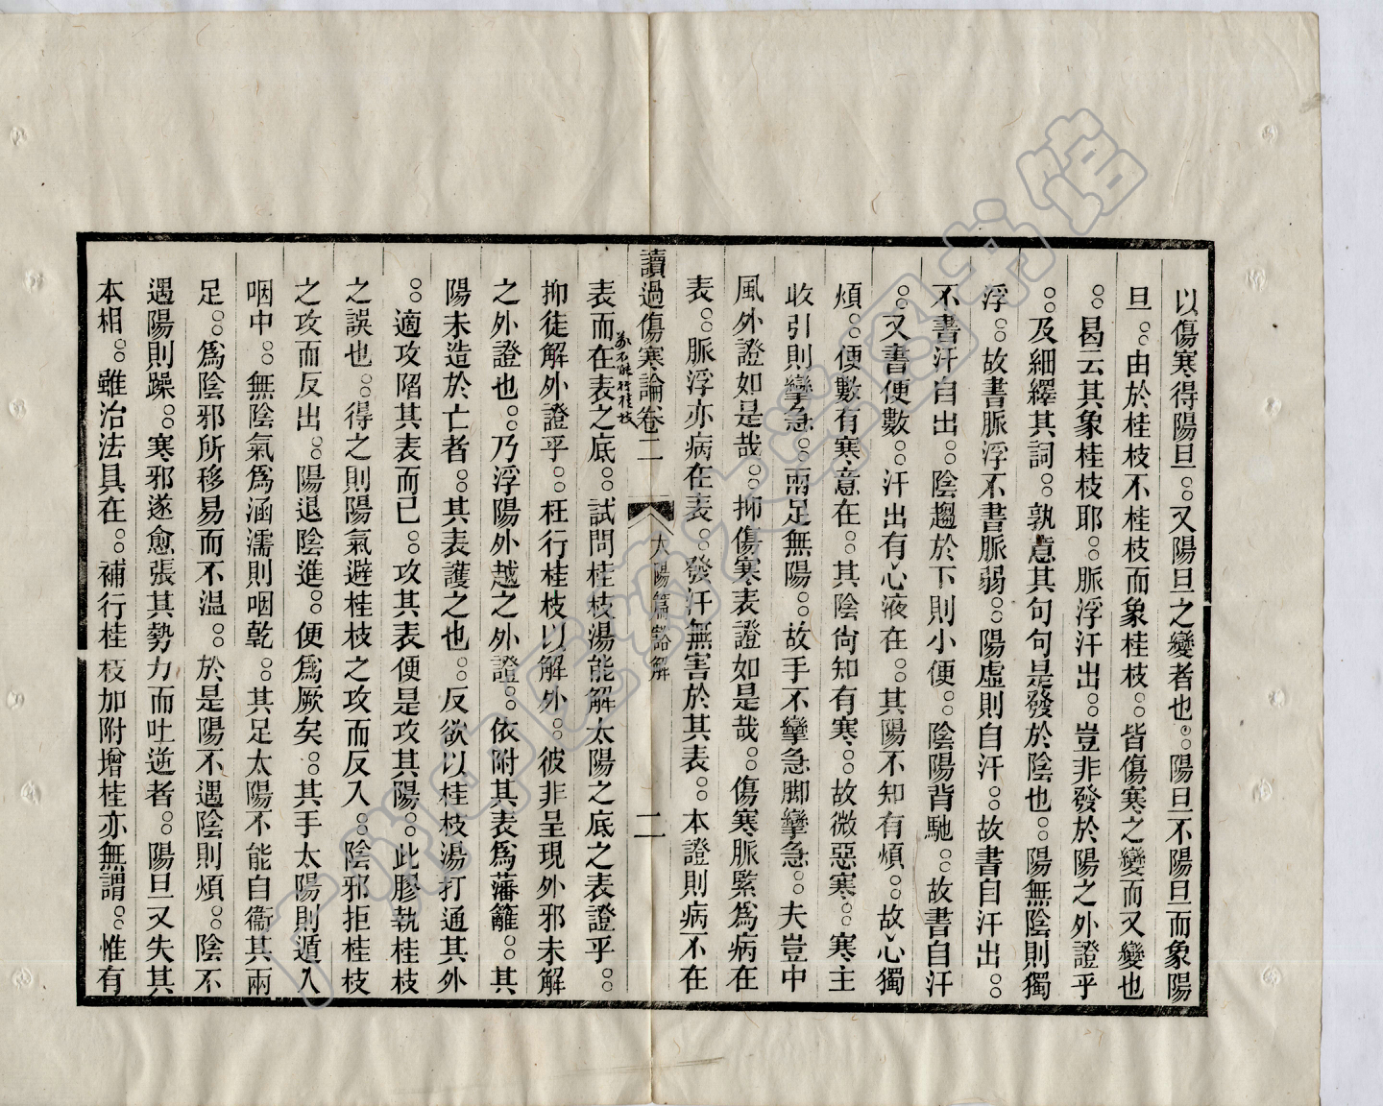 以傷寒得陽旦。○又陽旦之變者也。○陽旦不陽旦而象陽
旦。○由於桂枝不桂枝而象桂枝。○皆傷寒之變而又變也
○○曷云其象桂枝耶。○脈浮汗出。○豈非發於陽之外證乎
○○及細繹其詞。○孰意其句句是發於陰也。○陽無陰則獨
浮。○故書脈浮不書脈弱。○陽虛則自汗。○故書自汗出。○
不書汗自出。○陰趨於下則小便。○陰陽背馳。○故書自汗
○○又書便數。○汗出有心液在。○其陽不知有煩。○故心獨
煩。○便數有寒意在。○其陰尙知有寒。○故微惡寒。○寒主
收引則攣急。○兩足無陽。○故手不攣急脚攣急。○夫豈中
風外證如是哉。○抑傷寒表證如是哉。○傷寒脈緊爲病在
表。○脈浮亦病在表。○發汗無害於其表。○本證則病不在
讀過傷寒論卷二 太陽篇豁解 二
表而在表之底。○試問桂枝湯能解太陽之底之表證乎。○
抑徒解外證乎。○枉行桂枝以解外。○彼非呈現外邪未解
之外證也。○乃浮陽外越之外證。○依附其表爲藩籬。○其
陽未造於亡者。○其表護之也。○反欲以桂枝湯打通其外
○○適攻陷其表而已。○攻其表便是攻其陽。○此膠執桂枝
之誤也。○得之則陽氣避桂枝之攻而反入。○陰邪拒桂枝
之攻而反出。○陽退陰進。○便爲厥矣。○其手太陽則遁入
咽中。○無陰氣爲涵濡則咽乾。○其足太陽不能自衞其兩
足。○爲陰邪所移易而不温。○於是陽不遇陰則煩。○陰不
遇陽則躁。○寒邪遂愈張其勢力而吐逆者。○陽旦又失其
本相。○雖治法具在。○補行桂枝加附增桂亦無謂。○惟有